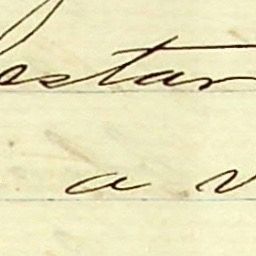 estar
a v